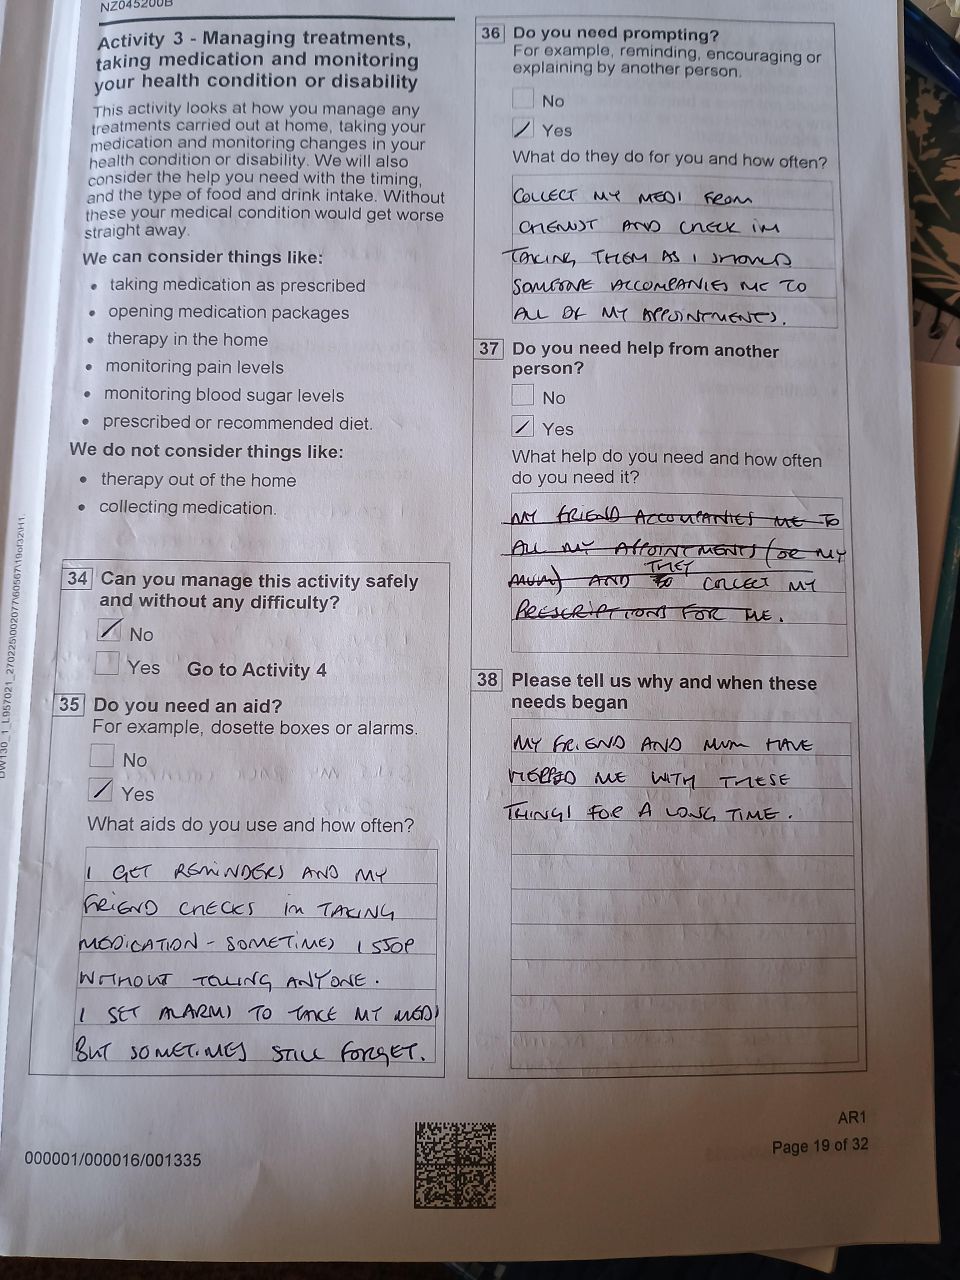 NZ045200B
Activity 3 - Managing treatments,
taking medication and monitoring
your health condition or disability
This activity looks at how you manage any
treatments carried out at home, taking your
medication and monitoring changes in your
health condition or disability. We will also
consider the help you need with the timing,
and the type of food and drink intake. Without
these your medical condition would get worse
straight away.
We can consider things like:
• taking medication as prescribed
• opening medication packages
• therapy in the home
• monitoring pain levels
• monitoring blood sugar levels
• prescribed or recommended diet.
We do not consider things like:
• therapy out of the home
• collecting medication.
34 Can you manage this activity safely
and without any difficulty?
No
Yes Go to Activity 4
35 Do you need an aid?
For example, dosette boxes or alarms.
No
Yes
What aids do you use and how often?
I GET REMINDERS AND MY
FRIEND CHECKS IM TAKING
MEDICATION - SOMETIMES I STOP
WITHOUT TELLING ANYONE.
I SET ALARMS TO TAKE MY MEDI
BUT SOMETIMES STILL FORGET.
36 Do you need prompting?
For example, reminding, encouraging or
explaining by another person.
No
Yes
What do they do for you and how often?
COLLECT MY MEDI FROM
CHEMIST AND CHECK IM
TAKING THEM AS I SHOULD
SOMEONE ACCOMPANIES ME TO
ALL OF MY APPOINTMENTS.
37 Do you need help from another
person?
No
Yes
What help do you need and how often
do you need it?
MY FRIEND ACCOMPANIES ME TO
ALL MY APPOINTMENTS (OR MY
MUM) AND THEY COLLECT MY
PRESCRIPTIONS FOR ME.
38 Please tell us why and when these
needs began
MY FRIEND AND MUM HAVE
HELPED ME WITH THESE
THINGS FOR A LONG TIME.
DW130_1_L957021_270225\002077\60567\19of32\H1
000001/000016/001335
AR1
Page 19 of 32